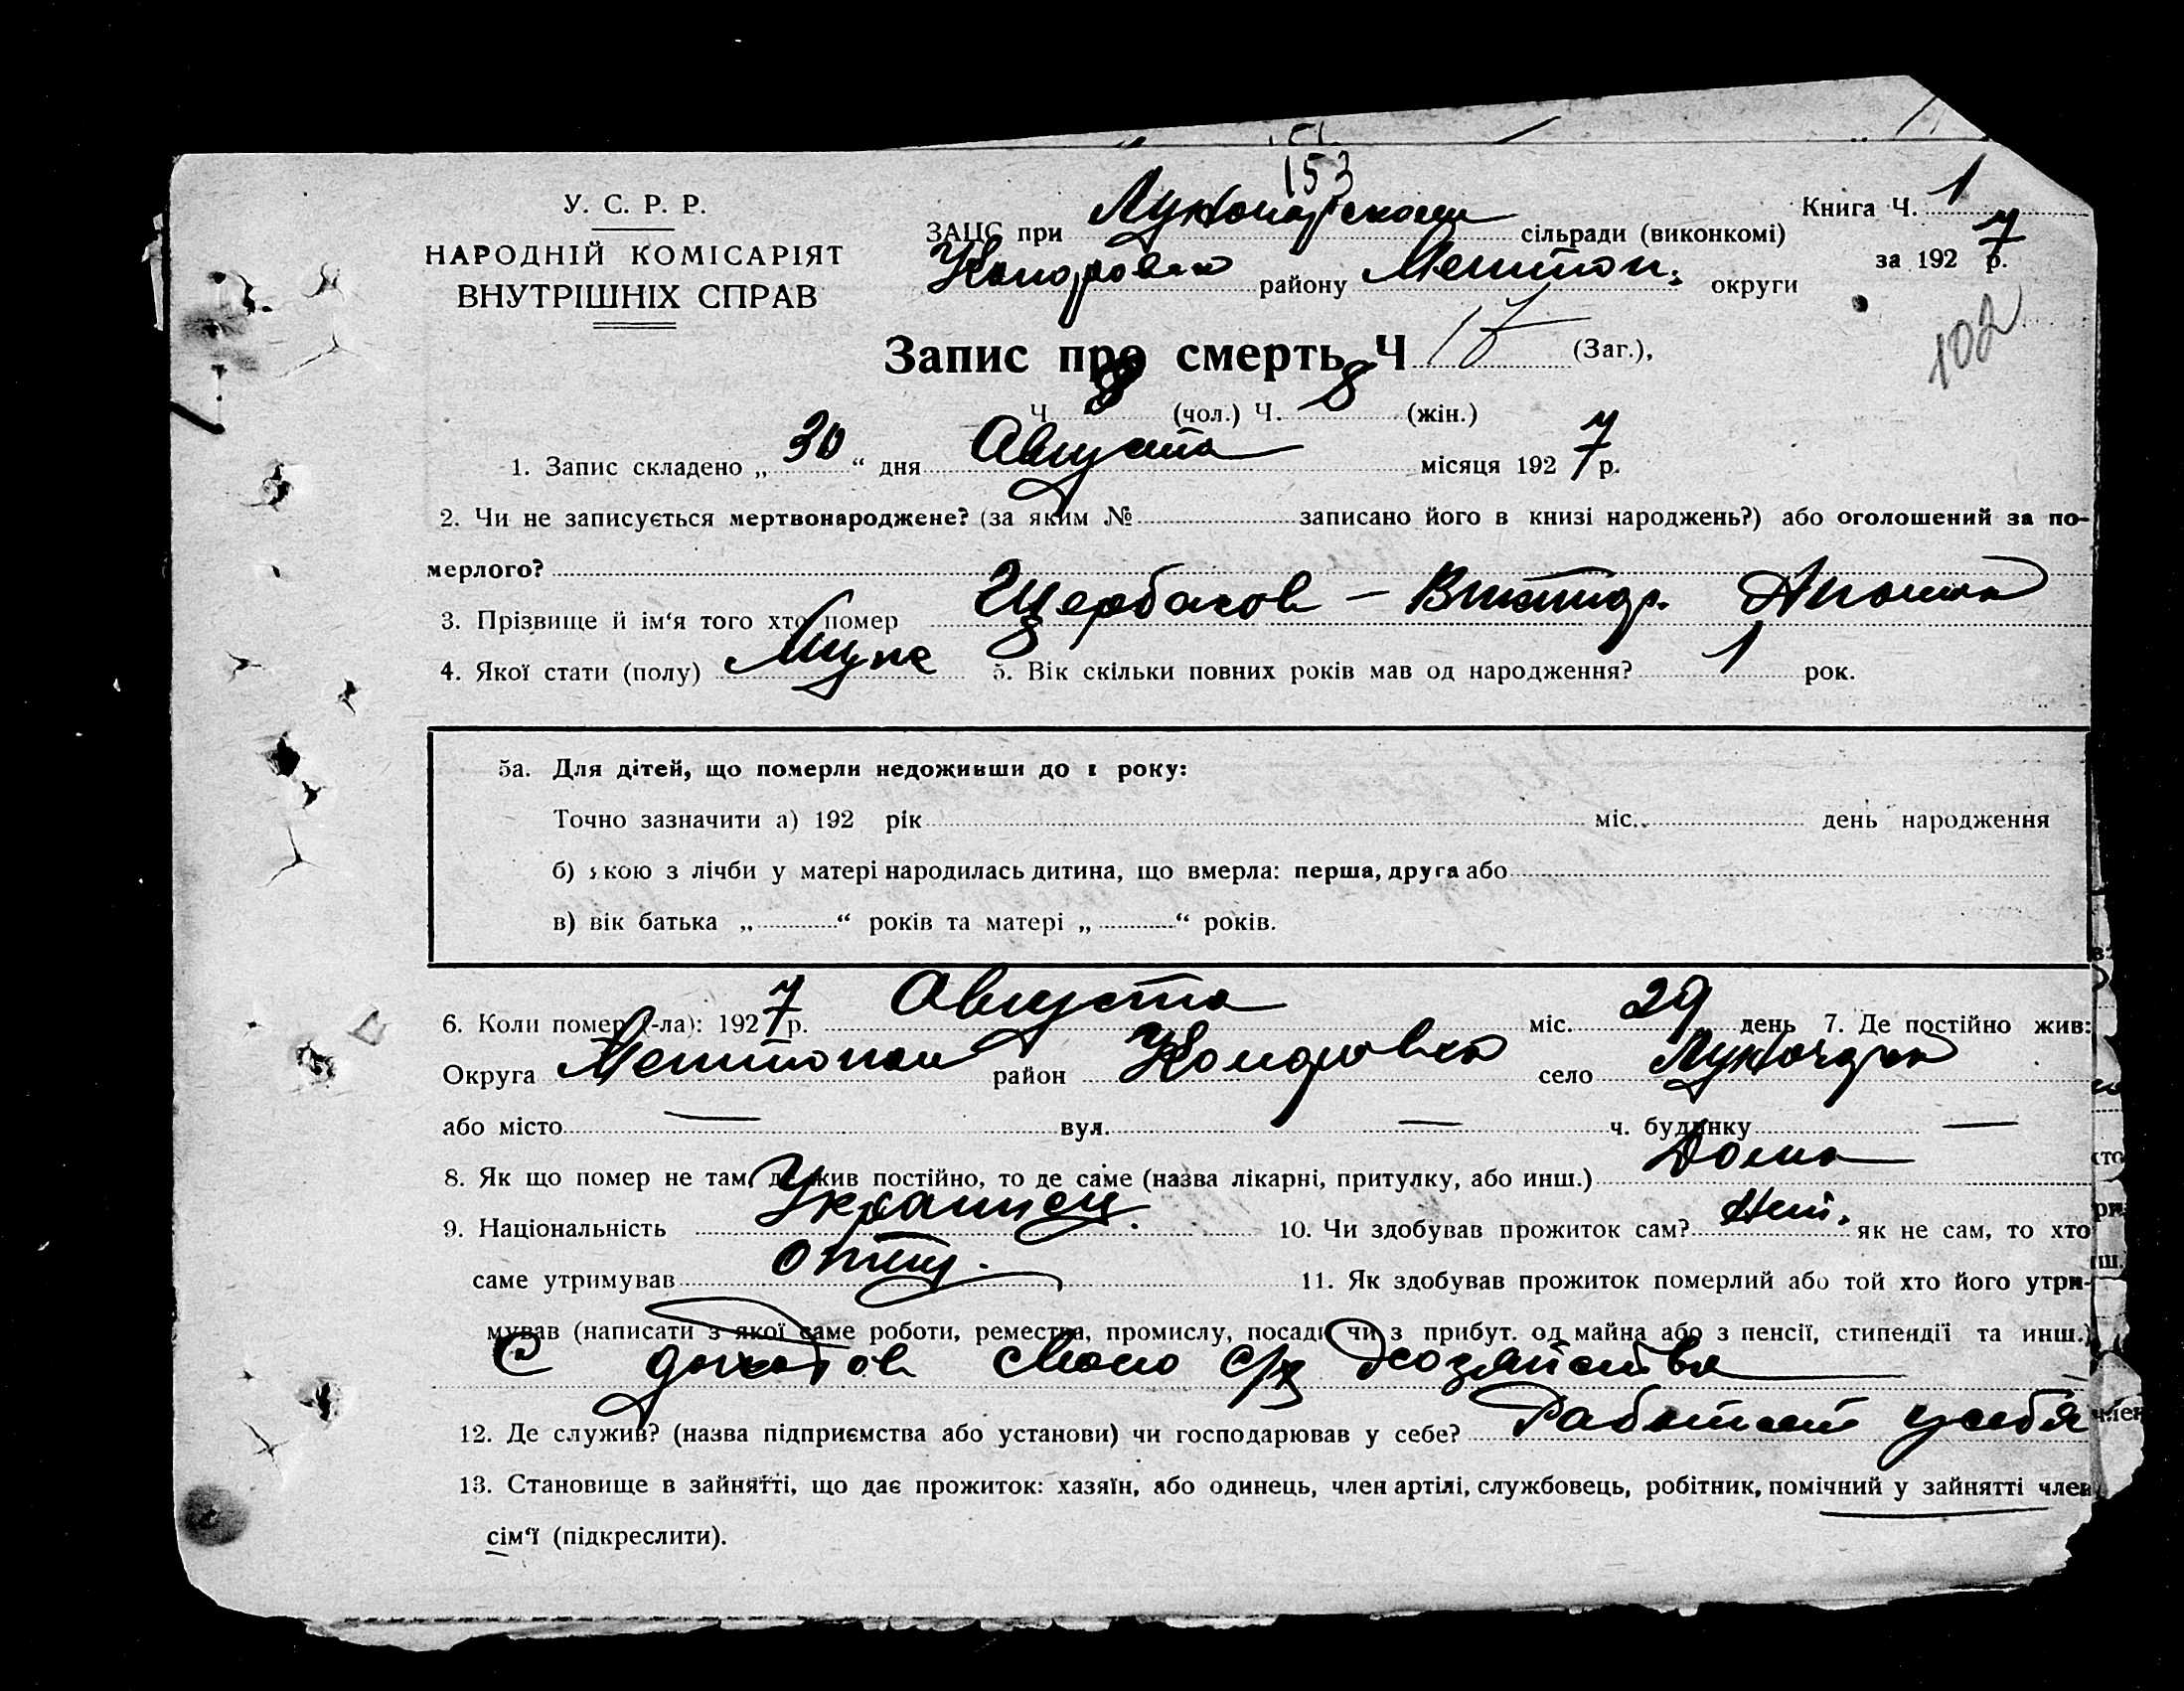 153
У. С. Р. Р.
НАРОДНІЙ КОМІСАРІЯТ
ВНУТРІШНІХ СПРАВ
ЗАЦС при сільради (виконкомі)
району Мелитоп. округи
Книга Ч. 1
за 1927 р.
102
Запис про смерть Ч (Заг.),
Ч 8 (чол.) Ч. 8 (жін.)
1. Запис складено „ 30 “ дня Августа місяця 1927 р.
2. Чи не записується мертвонароджене? (за яким № записано його в книзі народжень?) або оголошений за по-
мерлого?
3. Прізвище й ім‘я того хто помер Щербаков – Виктор
4. Якої стати (полу) 5. Вік скільки повних років мав од народження? 1 рок.
5а. Для дітей, що померли недоживши до 1 року:
Точно зазначити а) 192 рік міс. день народження
б) якою з лічби у матері народилась дитина, що вмерла: перша, друга або
в) вік батька „ “ років та матері „ “ років.
6. Коли помер (-ла): 1927 р. Августа міс. 29 день 7. Де постійно жив:
Округа район село
або місто — вул. — ч. будинку —
8. Як що помер не там, де жив постійно, то де саме (назва лікарні, притулку, або инш.) Дома
9. Національність Украинец. 10. Чи здобував прожиток сам? Нет. як не сам, то хто
саме утримував отец. 11. Як здобував прожиток померлий або той хто його утри-
мував (написати з якої саме роботи, ремества, промислу, посади чи з прибут. од майна або з пенсії, стипендії та инш.)
С доходов своего с/х хозяйства
12. Де служив? (назва підприємства або установи) чи господарював у себе? Работает у себя
13. Становище в зайнятті, що дає прожиток: хазяїн, або одинець, член артілі, службовець, робітник, помічний у зайнятті член
сім‘ї (підкреслити).